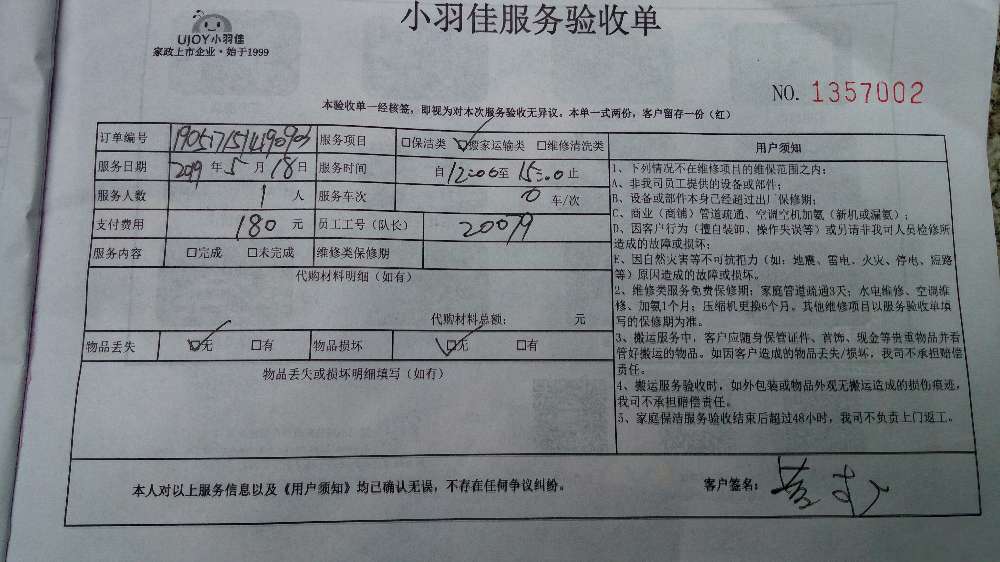 UJOY小羽佳
家政上市企业·始于1999
小羽佳服务验收单
NO. 1357002
本验收单一经核签，即视为对本次服务验收无异议。本单一式两份，客户留存一份（红）
订单编号 服务项目 □保洁类 □搬家运输类 □维修清洗类
服务日期 2019 年 5 月 18 日 服务时间 自 12:00 至 15:00 止
服务人数 1 人 服务车次 0 车/次
支付费用 180 元 员工工号（队长） 20079
服务内容 □完成 □未完成 维修类保修期
代购材料明细（如有）
代购材料总额： 元
物品丢失 □无 □有 物品损坏 □无 □有
物品丢失或损坏明细填写（如有）
用户须知
1、下列情况不在维修项目的维保范围之内：
A、非我司员工提供的设备或部件；
B、设备或部件本身已经超过出厂保修期；
C、商业（商铺）管道疏通、空调空机加氨（新机或漏氨）；
D、因客户行为（擅自装卸、操作失误等）或另请非我司人员检修所
造成的故障或损坏；
E、因自然灾害等不可抗拒力（如：地震、雷电、火灾、停电、短路
等）原因造成的故障或损坏。
2、维修类服务免费保修期：家庭管道疏通3天；水电维修、空调维
修、加氨1个月；压缩机更换6个月。其他维修项目以服务验收单填
写的保修期为准。
3、搬运服务中，客户应随身保管证件、首饰、现金等贵重物品并看
管好搬运的物品。如因客户造成的物品丢失/损坏，我司不承担赔偿
责任。
4、搬运服务验收时，如外包装或物品外观无搬运造成的损伤痕迹，
我司不承担赔偿责任。
5、家庭保洁服务验收结束后超过48小时，我司不负责上门返工。
本人对以上服务信息以及《用户须知》均已确认无误，不存在任何争议纠纷。 客户签名：